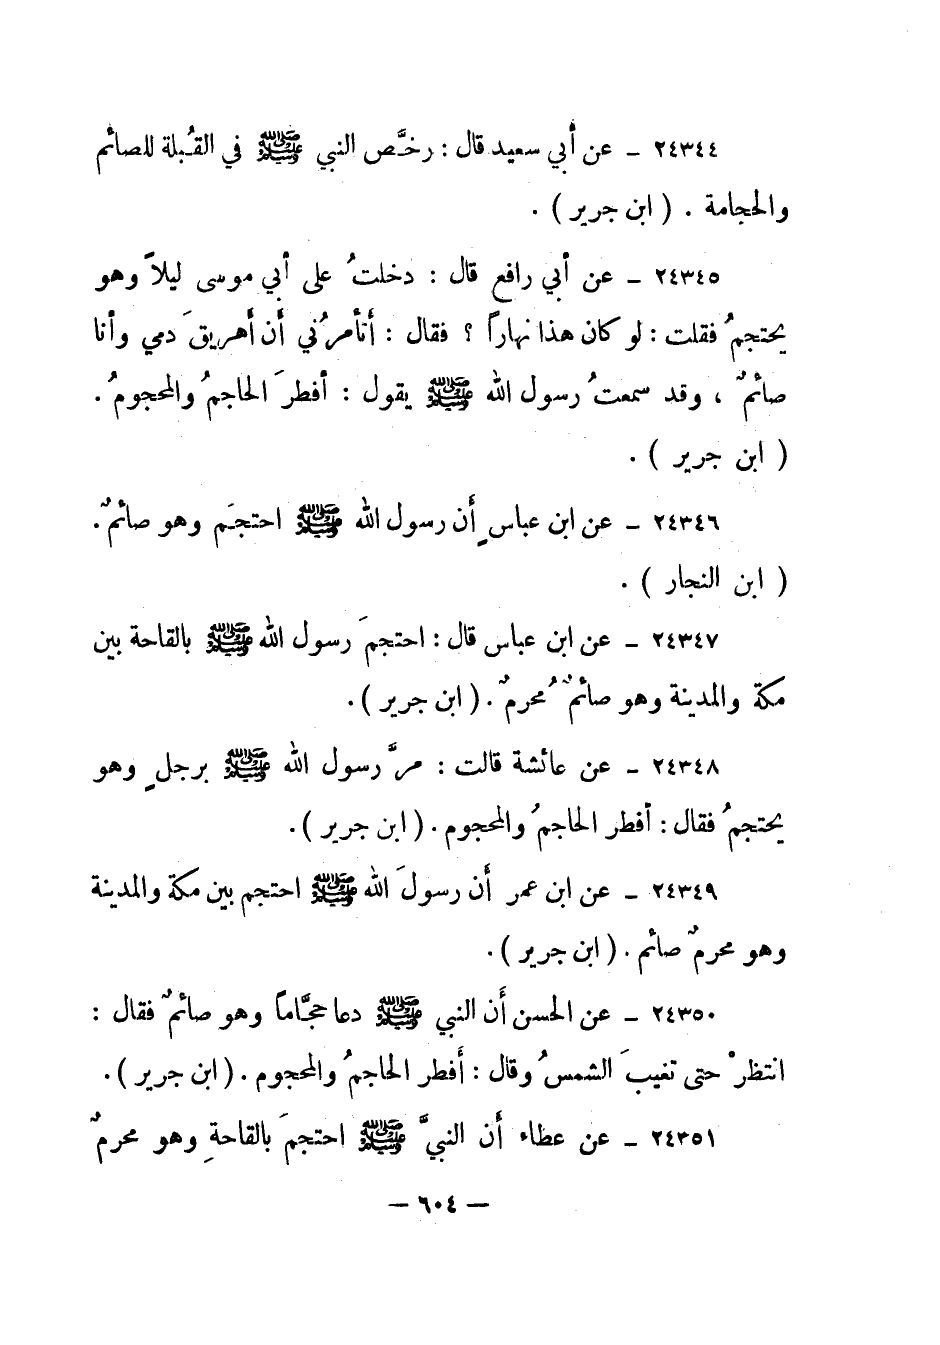 ٢٤٣٤٤ ـ عن أبي سعيد قال : رخَّص النبي ﷺ في القُبلة للصائم
والحجامة . ( ابن جرير ) .
٢٤٣٤٥ ـ عن أبي رافع قال : دخلتُ على أبي موسى ليلاً وهو
يحتجمُ فقلت : لو كان هذا نهاراً ؟ فقال : أتأمرُني أن أهريقَ دمي وأنا
صائمٌ ، وقد سمعتُ رسول الله ﷺ يقول : أفطرَ الحاجمُ والمحجومُ .
( ابن جرير ) .
٢٤٣٤٦ ـ عن ابن عباسٍ أن رسول الله ﷺ احتجَم وهو صائمٌ .
( ابن النجار ) .
٢٤٣٤٧ ـ عن ابن عباس قال : احتجمَ رسول الله ﷺ بالقاحة بين
مكة والمدينة وهو صائمٌ مُحرمٌ . ( ابن جرير ) .
٢٤٣٤٨ ـ عن عائشة قالت : مرَّ رسول الله ﷺ برجلٍ وهو
يحتجمُ فقال : أفطر الحاجمُ والمحجوم . ( ابن جرير ) .
٢٤٣٤٩ ـ عن ابن عمر أن رسولَ الله ﷺ احتجم بين مكة والمدينة
وهو محرمٌ صائم . ( ابن جرير ) .
٢٤٣٥٠ ـ عن الحسن أن النبي ﷺ دعا حجَّاماً وهو صائمٌ فقال :
انتظرْ حتى تغيبَ الشمسُ وقال : أفطر الحاجمُ والمحجوم . ( ابن جرير ) .
٢٤٣٥١ ـ عن عطاء أن النبيَّ ﷺ احتجمَ بالقاحةِ وهو محرمٌ
— ٦٠٤ —